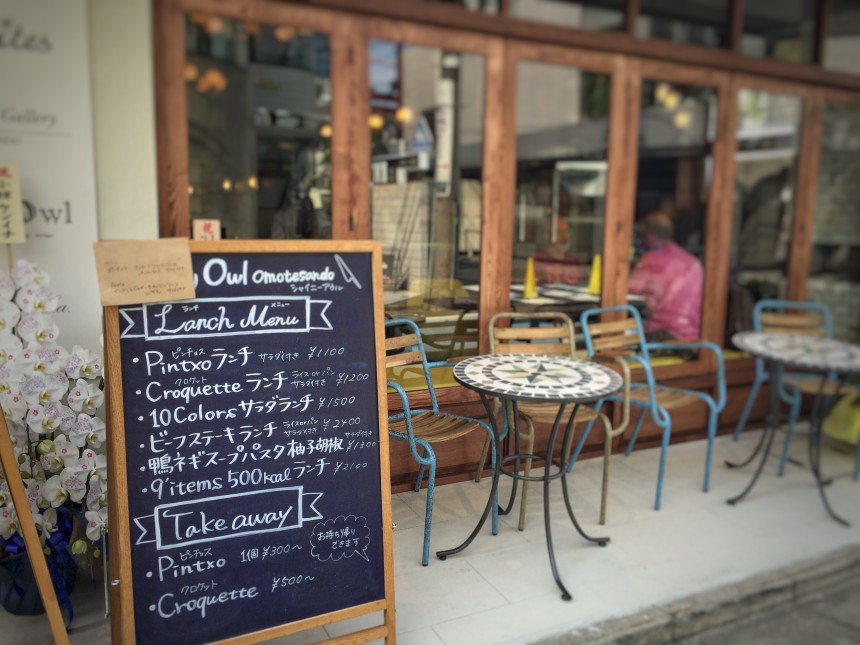 ites
Gallery
Owl
祝
祝
Owl Omotesando
シャイニーアウル
ランチ メニュー
Lanch Menu
ピンチョス
・Pintxoランチ サラダ付き ¥1100
クロケット
・Croquetteランチ ライス or パン サラダ付き ¥1200
・10 Colors サラダランチ ¥1500
・ビーフステーキランチ ライス or パン サラダ付き ¥2400
・鴨ネギスープパスタ 柚子胡椒 サラダ付き ¥1300
・9 items 500kcal ランチ ¥2100
Take away
お持ち帰り
できます
ピンチョス
・Pintxo 1個 ¥300〜
クロケット
・Croquette ¥500〜